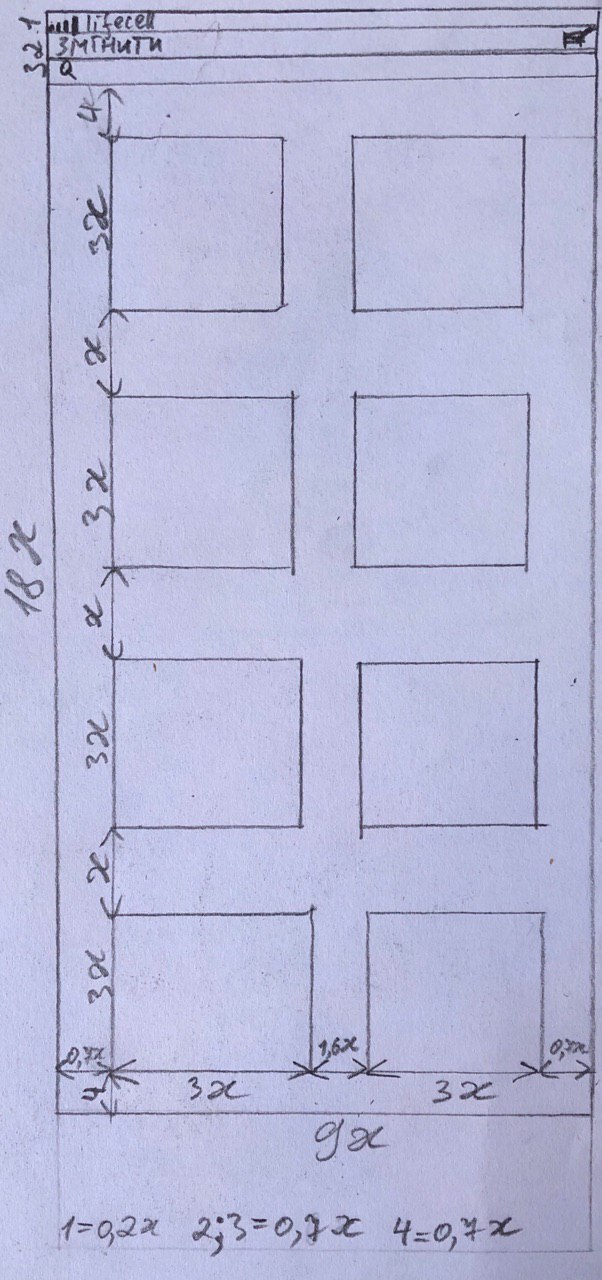 1 lifecell
2 ЗМІНИТИ
3 Q
4
3x
x
3x
18x
x
3x
x
3x
0,7x 1,6x 0,7x
4 3x 3x
9x
1=0,2x 2;3=0,7x 4=0,7x